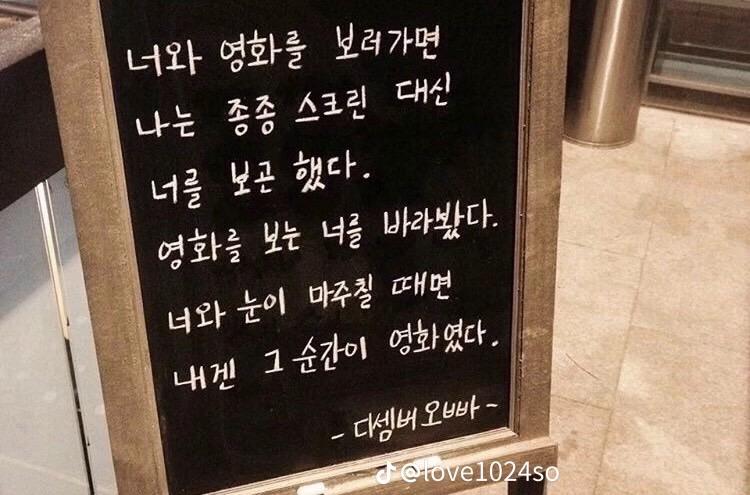 너와 영화를 보러가면
나는 종종 스크린 대신
너를 보곤 했다.
영화를 보는 너를 바라봤다.
너와 눈이 마주칠 때면
내겐 그 순간이 영화였다.
- 디셈버오빠 -
@love1024so